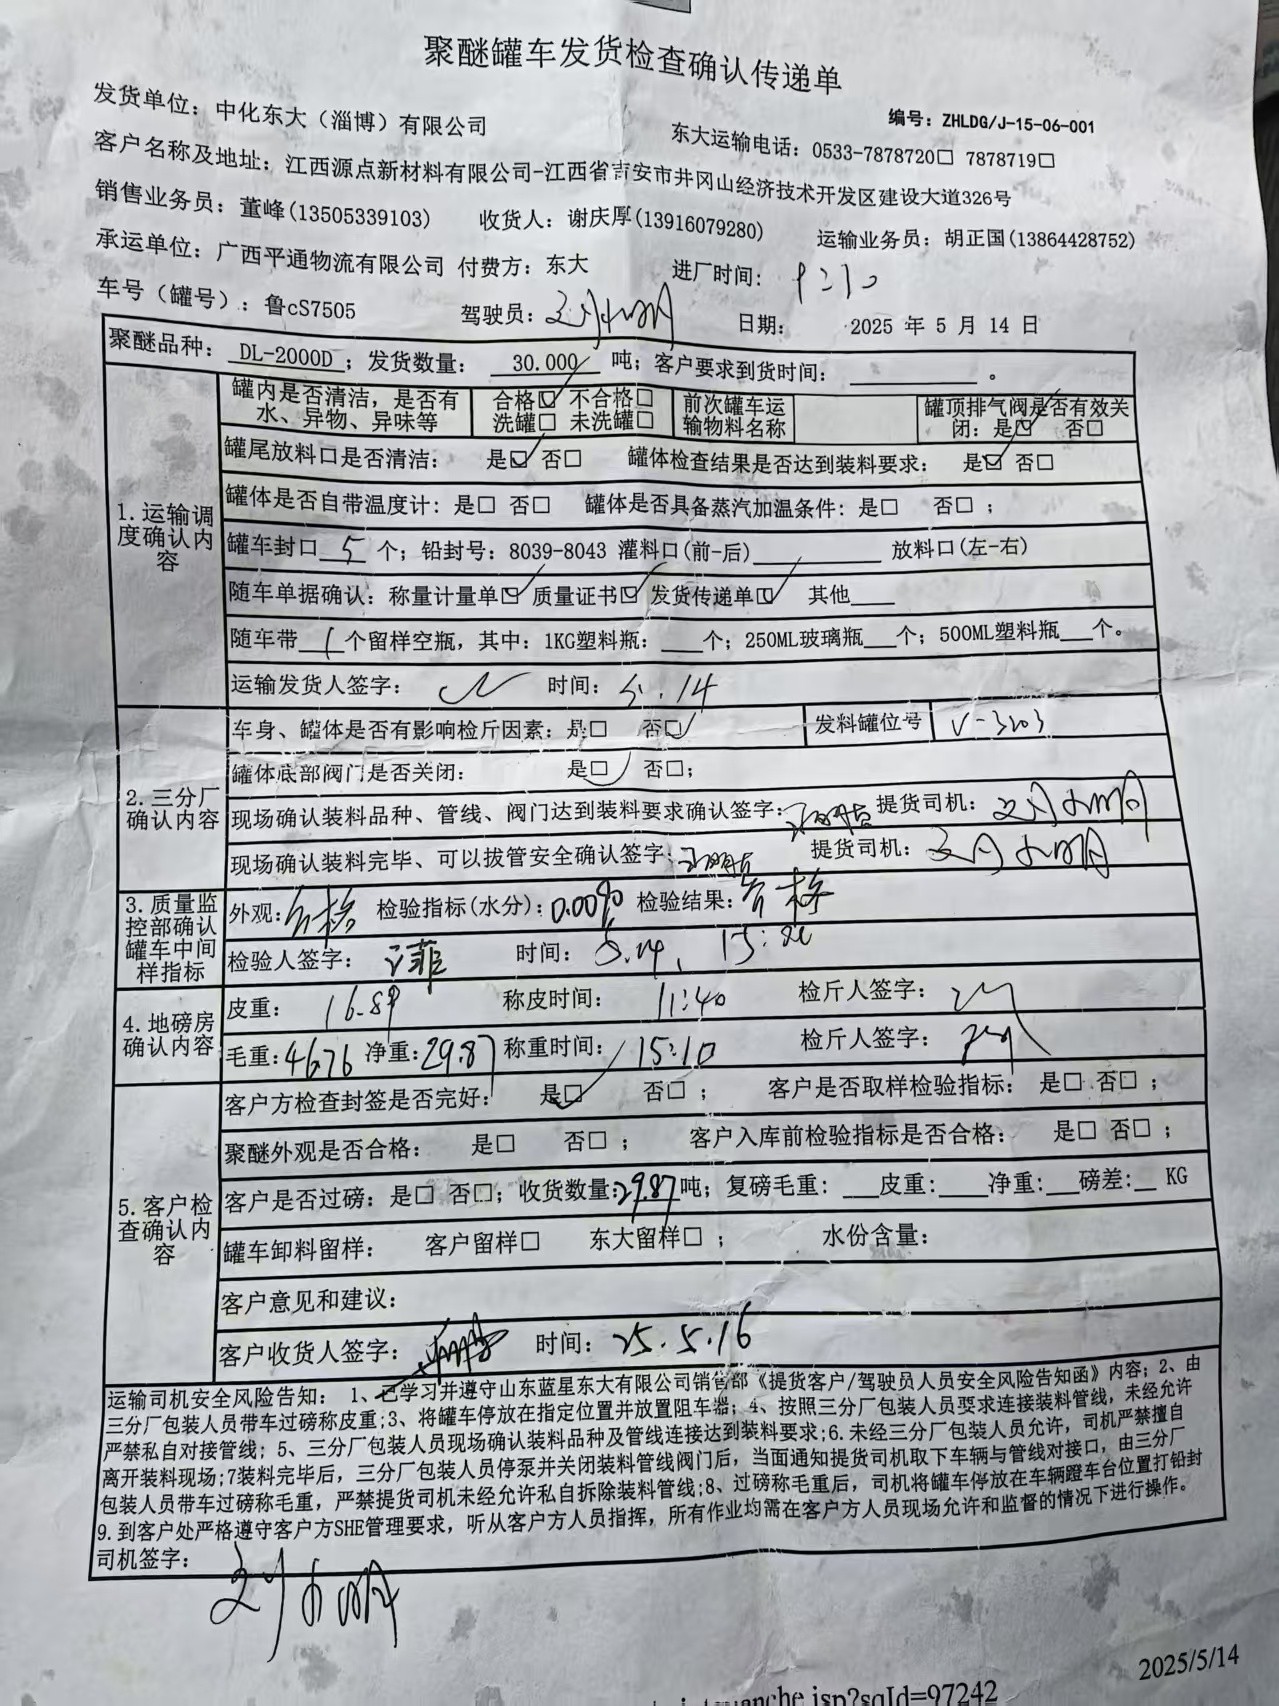 聚醚罐车发货检查确认传递单
编号：ZHLDG/J-15-06-001
发货单位：中化东大（淄博）有限公司 东大运输电话：0533-7878720□ 7878719□
客户名称及地址：江西源点新材料有限公司-江西省吉安市井冈山经济技术开发区建设大道326号
销售业务员：董峰(13505339103) 收货人：谢庆厚(13916079280) 运输业务员：胡正国(13864428752)
承运单位：广西平通物流有限公司 付费方：东大 进厂时间：
车号（罐号）：鲁cS7505 驾驶员： 日期： 2025 年 5 月 14 日
聚醚品种：DL-2000D；发货数量：30.000 吨；客户要求到货时间：________。
1.运输调度确认内容
罐内是否清洁，是否有水、异物、异味等 合格☑ 不合格□ 洗罐□ 未洗罐□ 前次罐车运输物料名称 罐顶排气阀是否有效关闭：是☑ 否□
罐尾放料口是否清洁：是☑ 否□ 罐体检查结果是否达到装料要求：是☑ 否□
罐体是否自带温度计：是□ 否□ 罐体是否具备蒸汽加温条件：是□ 否□；
罐车封口 5 个；铅封号：8039-8043 灌料口(前-后)________ 放料口(左-右)
随车单据确认：称量计量单☑ 质量证书☑ 发货传递单☑ 其他____
随车带 1 个留样空瓶，其中：1KG塑料瓶：___个；250ML玻璃瓶___个；500ML塑料瓶___个。
运输发货人签字： 时间：5.14
2.三分厂确认内容
车身、罐体是否有影响检斤因素：是□ 否☑ 发料罐位号 V-3203
罐体底部阀门是否关闭： 是☑ 否□；
现场确认装料品种、管线、阀门达到装料要求确认签字： 提货司机：
现场确认装料完毕、可以拔管安全确认签字： 提货司机：
3.质量监控部确认罐车中间样指标
外观：合格 检验指标(水分)：0.00% 检验结果：合格
检验人签字： 时间：5.14.
4.地磅房确认内容
皮重：16.89 称皮时间：11:40 检斤人签字：
毛重：46.76 净重：29.87 称重时间：15:10 检斤人签字：
5.客户检查确认内容
客户方检查封签是否完好： 是☑ 否□； 客户是否取样检验指标： 是□ 否□；
聚醚外观是否合格： 是□ 否□； 客户入库前检验指标是否合格： 是□ 否□；
客户是否过磅：是□ 否□；收货数量：29.87吨；复磅毛重：___皮重：___净重：___磅差：__ KG
罐车卸料留样： 客户留样□ 东大留样□； 水份含量：
客户意见和建议：
客户收货人签字： 时间：25.5.16
运输司机安全风险告知： 1、已学习并遵守山东蓝星东大有限公司销售部《提货客户/驾驶员人员安全风险告知函》内容；2、由
三分厂包装人员带车过磅称皮重;3、将罐车停放在指定位置并放置阻车器；4、按照三分厂包装人员要求连接装料管线，未经允许
严禁私自对接管线；5、三分厂包装人员现场确认装料品种及管线连接达到装料要求;6.未经三分厂包装人员允许，司机严禁擅自
离开装料现场;7装料完毕后，三分厂包装人员停泵并关闭装料管线阀门后，当面通知提货司机取下车辆与管线对接口，由三分厂
包装人员带车过磅称毛重，严禁提货司机未经允许私自拆除装料管线;8、过磅称毛重后，司机将罐车停放在车辆蹬车台位置打铅封
9.到客户处严格遵守客户方SHE管理要求，听从客户方人员指挥，所有作业均需在客户方人员现场允许和监督的情况下进行操作。
司机签字：
2025/5/14
che.jsp?sqId=97242